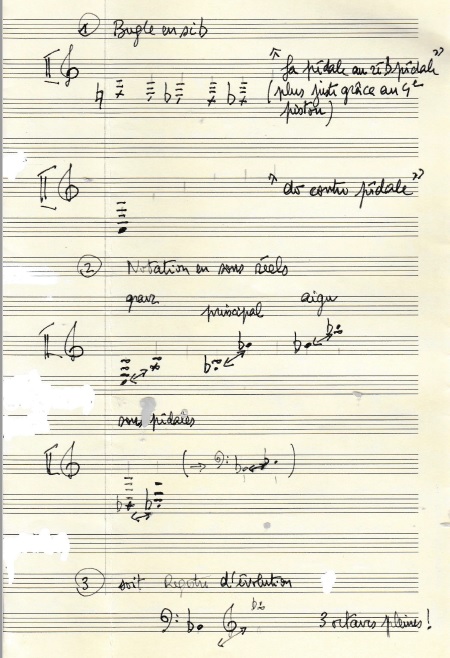 1 Bugle en sib
II "fa pédale au réb pédale"
(plus juste grâce au 4e
piston)
II "do contre pédale"
2 Notation en sons réels
grave principal aigu
II
sons pédales
II
3 soit Registre d'évolution
3 octaves pleines !